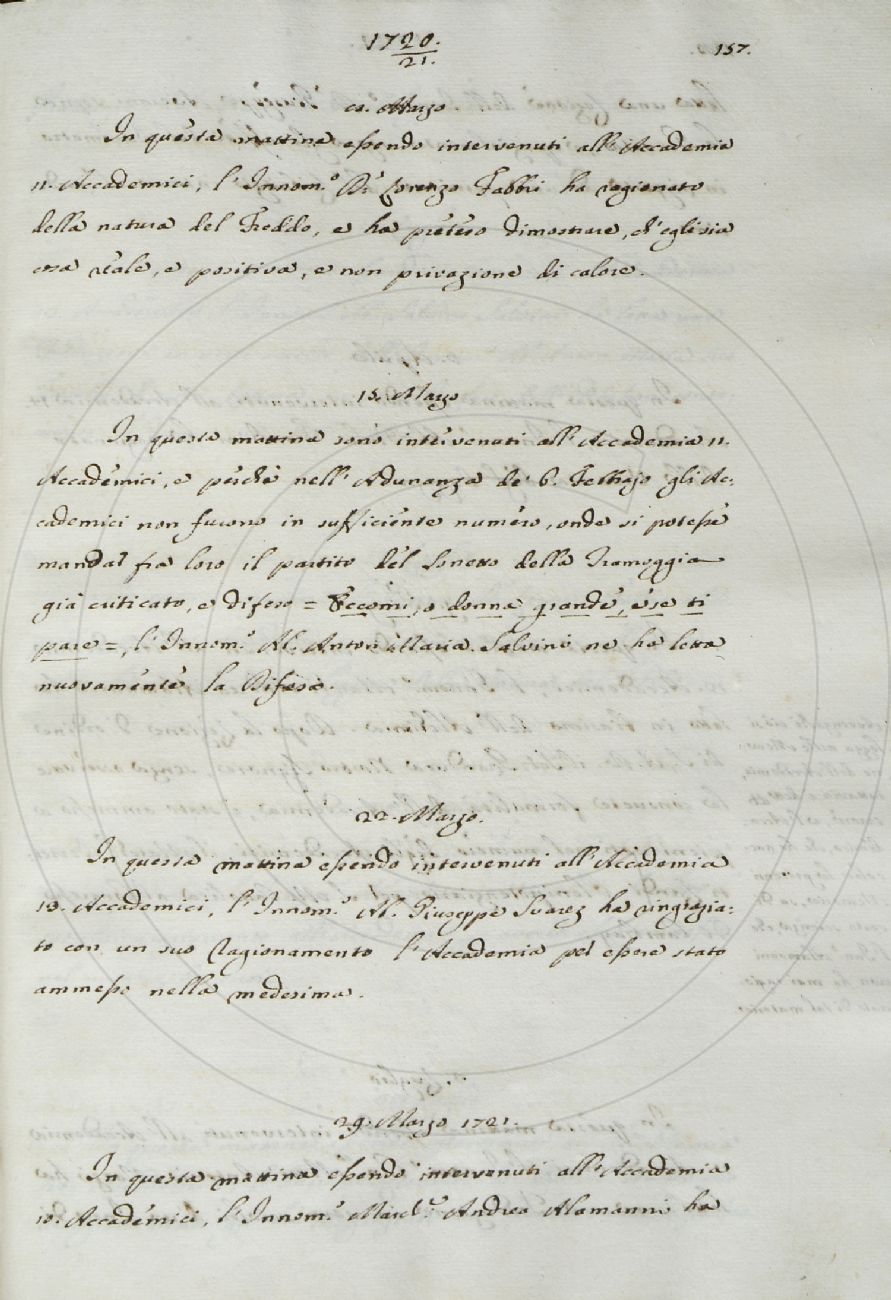 1720.
21.
157.
Marzo
In questa mattina essendo intervenuti all'Accademia
11. Accademici, l'Innom.º Dr. Lorenzo Fabbri ha ragionato
della natura del Freddo, e ha preteso dimostrare, ch'egli sia
cosa reale, e positiva, e non privazione di calore.
15. Marzo
In questa mattina sono intervenuti all'Accademia 11.
Accademici, e perchè nell'Adunanza de' 6. Febbrajo gli Ac:
cademici non furono in sufficiente numero, onde si potesse
mandar fra loro il partito del Sonetto della Tramoggia
già criticato, e difeso = Eccomi, o donna grande, e se ti
pare =, l'Innom.º Ab. Anton Maria Salvini ne ha letta
nuovamente la Difesa.
22. Marzo.
In questa mattina essendo intervenuti all'Accademia
13. Accademici, l'Innom.º Ab. Giuseppe Suarez ha ringrazia:
to con un suo Ragionamento l'Accademia per essere stato
ammesso nella medesima.
29. Marzo 1721.
In questa mattina essendo intervenuti all'Accademia
10. Accademici, l'Innom.º March.e Andrea Alamanni ha